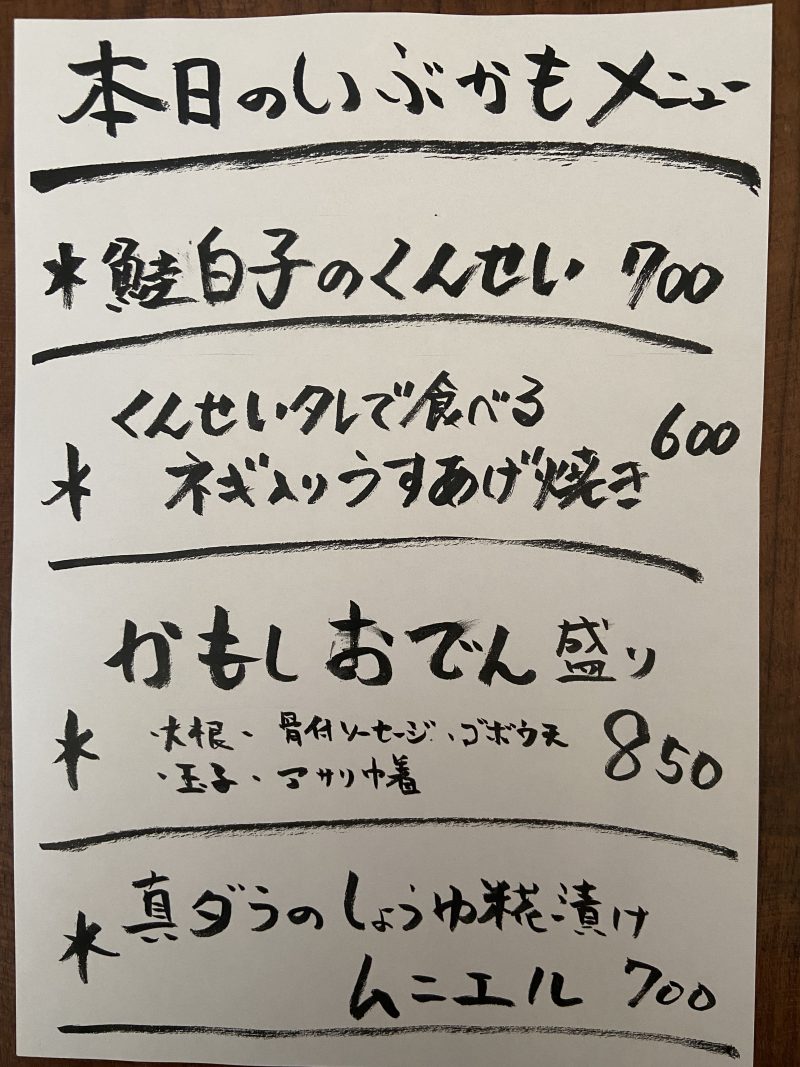 本日のいぶかもメニュー
*鮭白子のくんせい 700
くんせいタレで食べる
* ネギ入りうすあげ焼き 600
かもしおでん盛り
・大根・骨付ソーセージ・ゴボウ天
* ・玉子・アサリ巾着 850
真ダラのしょうゆ糀漬け
* ムニエル 700